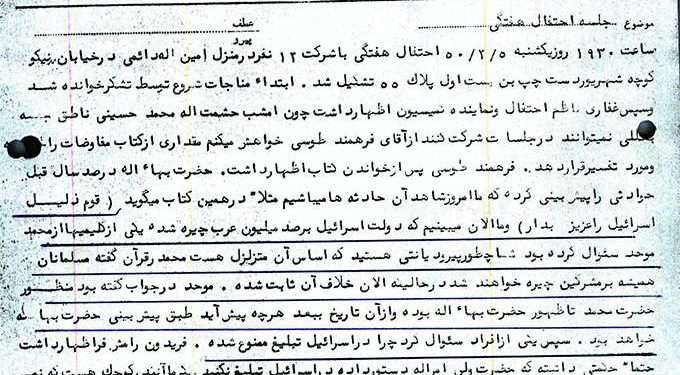 موضوع جلسه احتفال هفتگی
عطف
پیرو
ساعت ۱۹۳۰ روز یکشنبه ۵۰/۲/۵ احتفال هفتگی با شرکت ۱۲ نفر در منزل امین اله دائمی در خیابان نیکو
کوچه شهریور دست چپ بن بست اول پلاک ۵۵ تشکیل شد . ابتداء مناجات شروع توسط تشکر خوانده شد
و سپس غفاری ناظم احتفال و نماینده نمیسیون اظهار داشت چون امشب حشمت اله محمد حسینی ناطق جلسه
نمیتوانند در جلسات شرکت کنند از آقای فرهمند طوسی خواهش میکنم مقداری از کتاب مفاوضات را
و مورد تفسیر قرار دهد . فرهمند طوسی پس از خواندن کتاب اظهار داشت . حضرت بهاء اله در صد سال قبل
حوادثی را پیش بینی کرده که ما امروز شاهد آن حادثه ها میباشیم مثلا" در همین کتاب میگوید ( قوم ذلیل
اسرائیل را عزیز بدار ) و ما الان میبینیم که دولت اسرائیل بر صد میلیون عرب چیره شده یکی از کلیمیها از محمد
موحد سئوال کرده بود شما چطور پیرو دیانتی هستید که اساس آن متزلزل هست محمد در قرآن گفته مسلمانان
همیشه بر مشرکین چیره خواهند شد در حالیکه الان خلاف آن ثابت شده . موحد در جواب گفته بود منظور
حضرت محمد تا ظهور حضرت بهاء اله بوده و از آن تاریخ ببعد هرچه پیش آید طبق پیش بینی حضرت بهاء اله
خواهد بود . سپس یکی از افراد سئوال کرد چرا در اسرائیل تبلیغ ممنوع شده . فریدون رامش فر اظهار داشت
حتما" حکمتی داشته که حضرت ولی امراله دستور داده در اسرائیل تبلیغ نکنید